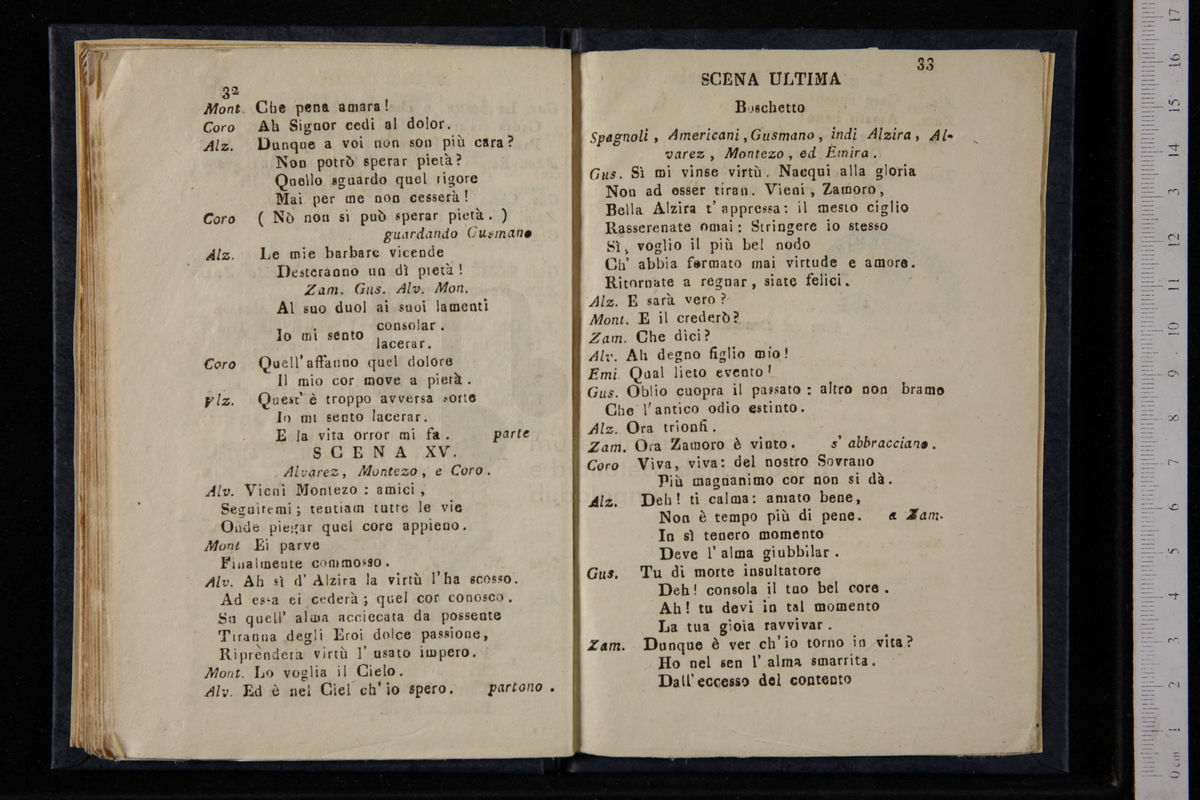 32
Mont. Che pena amara!
Coro Ah Signor cedi al dolor.
Alz. Dunque a voi non son più cara?
Non potrò sperar pietà?
Quello sguardo quel rigore
Mai per me non cesserà!
Coro ( Nò non si può sperar pietà. )
guardando Gusmano
Alz. Le mie barbare vicende
Desteranno un dì pietà!
Zam. Gus. Alv. Mon.
Al suo duol ai suoi lamenti
Io mi sento consolar.
lacerar.
Coro Quell' affanno quel dolore
Il mio cor move a pietà.
Ylz. Quest' è troppo avversa sorte
Io mi sento lacerar.
E la vita orror mi fa. parte
SCENA XV.
Alvarez, Montezo, e Coro.
Alv. Vieni Montezo: amici,
Seguitemi; tentiam tutte le vie
Onde piegar quel core appieno.
Mont Ei parve
Finalmente commosso.
Alv. Ah sì d' Alzira la virtù l'ha scosso.
Ad essa ei cederà; quel cor conosco.
Su quell' alma acciecata da possente
Tiranna degli Eroi dolce passione,
Riprènderà virtù l' usato impero.
Mont. Lo voglia il Cielo.
Alv. Ed è nel Ciel ch' io spero. partono.
33
SCENA ULTIMA
Boschetto
Spagnoli, Americani, Gusmano, indi Alzira, Al-
varez, Montezo, ed Emira.
Gus. Sì mi vinse virtù. Nacqui alla gloria
Non ad esser tiran. Vieni, Zamoro,
Bella Alzira t' appressa: il mesto ciglio
Rasserenate omai: Stringere io stesso
Sì, voglio il più bel nodo
Ch' abbia formato mai virtude e amore.
Ritornate a regnar, siate felici.
Alz. E sarà vero?
Mont. E il crederò?
Zam. Che dici?
Alv. Ah degno figlio mio!
Emi Qual lieto evento!
Gus. Oblio cuopra il passato: altro non bramo
Che l'antico odio estinto.
Alz. Ora trionfi.
Zam. Ora Zamoro è vinto. s' abbracciano.
Coro Viva, viva: del nostro Sovrano
Più magnanimo cor non si dà.
Alz. Deh! ti calma: amato bene,
Non è tempo più di pene. a Zam.
In sì tenero momento
Deve l' alma giubbilar.
Gus. Tu di morte insultatore
Deh! consola il tuo bel core.
Ah! tu devi in tal momento
La tua gioia ravvivar.
Zam. Dunque è ver ch' io torno in vita?
Ho nel sen l' alma smarrita.
Dall' eccesso del contento
0 cm 1 2 3 4 5 6 7 8 9 10 11 12 13 14 15 16 17